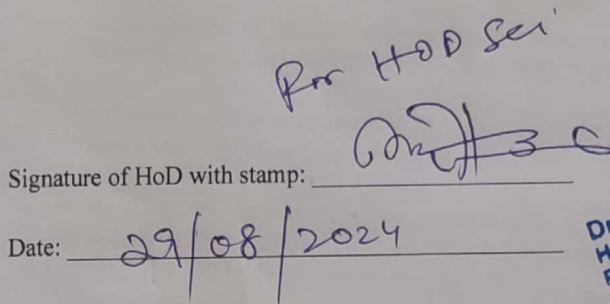 For HOD Sei
Signature of HoD with stamp:
Date: 29/08/2024